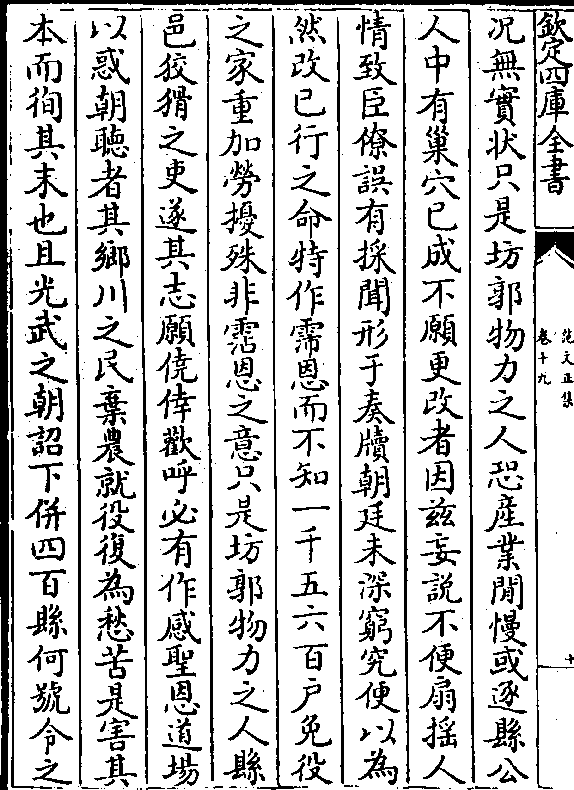 欽定四庫全書
范文正集
卷十九
十
况無實狀只是坊郭物力之人恐産業閒慢或逐縣公
人中有巢穴已成不願更改者因兹妄説不便扇揺人
情致臣僚誤有採聞形于奏牘朝廷未深窮究便以為
然改已行之命特作霈恩而不知一千五六百户免役
之家重加勞擾殊非霑恩之意只是坊郭物力之人縣
邑狡猾之吏遂其志願僥倖歡呼必有作感聖恩道場
以惑朝聽者其鄉川之民棄農就役復為愁苦是害其
本而徇其末也且光武之朝詔下併四百縣何號令之